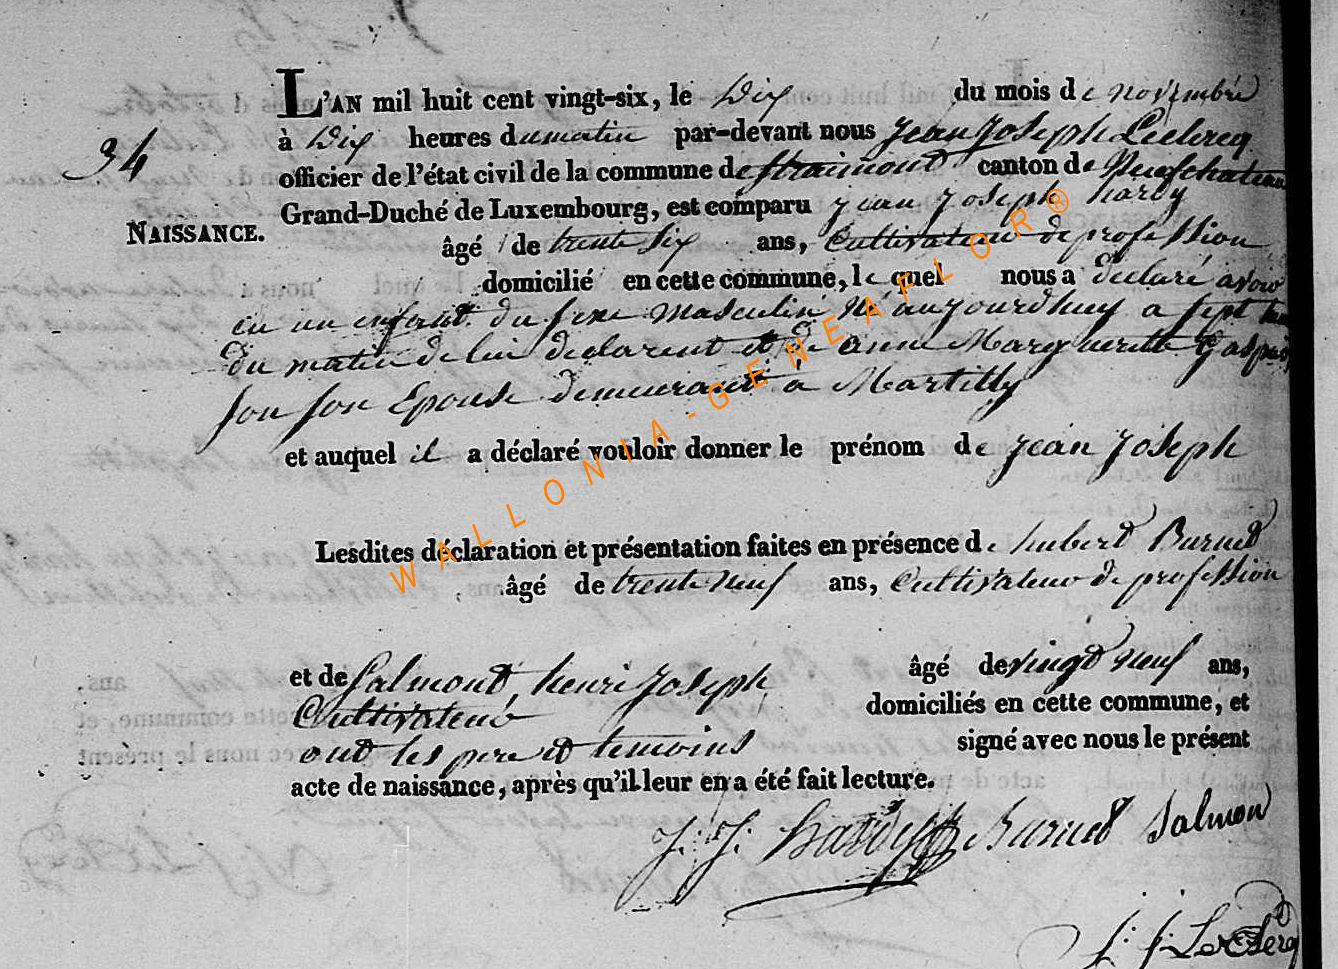 L'AN mil huit cent vingt-six, le Dix du mois de novembre
à Dix heures du matin par-devant nous Jean Joseph Leclercq
officier de l'état civil de la commune de Straimont canton de Neufchateau
34
Grand-Duché de Luxembourg, est comparu jean joseph hardy
NAISSANCE.
âgé de trente six ans, Cultivateur de profession
domicilié en cette commune, le quel nous a declaré avoir
eu un enfant du sexe masculin né aujourdhuy a sept
du matin de lui declarent et de ann Marguerite
son Epouse demeurant à Martilly
et auquel il a déclaré vouloir donner le prénom de jean joseph
Lesdites déclaration et présentation faites en présence de hubert Burnet
âgé de trente neuf ans, Cultivateur de profession
et de Salmont, henri joseph âgé de vingt neuf ans,
Cultivateur domiciliés en cette commune, et
ont les pere et temoins signé avec nous le présent
acte de naissance, après qu'il leur en a été fait lecture.
J. J. hardy Burnet Salmon
J. J. Leclercq
WALLONIA-GENEAFLOR®